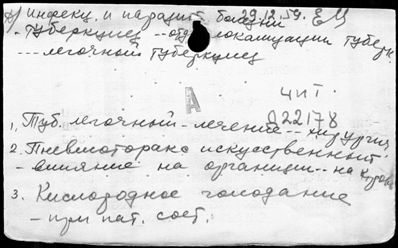 инфекц. и паразит. болезни 29.12.59.
- туберкулез -- отд. локализации туберк.
--- легочный туберкулез
А
ЧИТ
Д22178
1, Туб. легочный - лечение -- хирургич.
2. Пневмоторакс искусственный
- влияние на организм -- на кровь
3. Кислородное голодание
- при пат. сост.